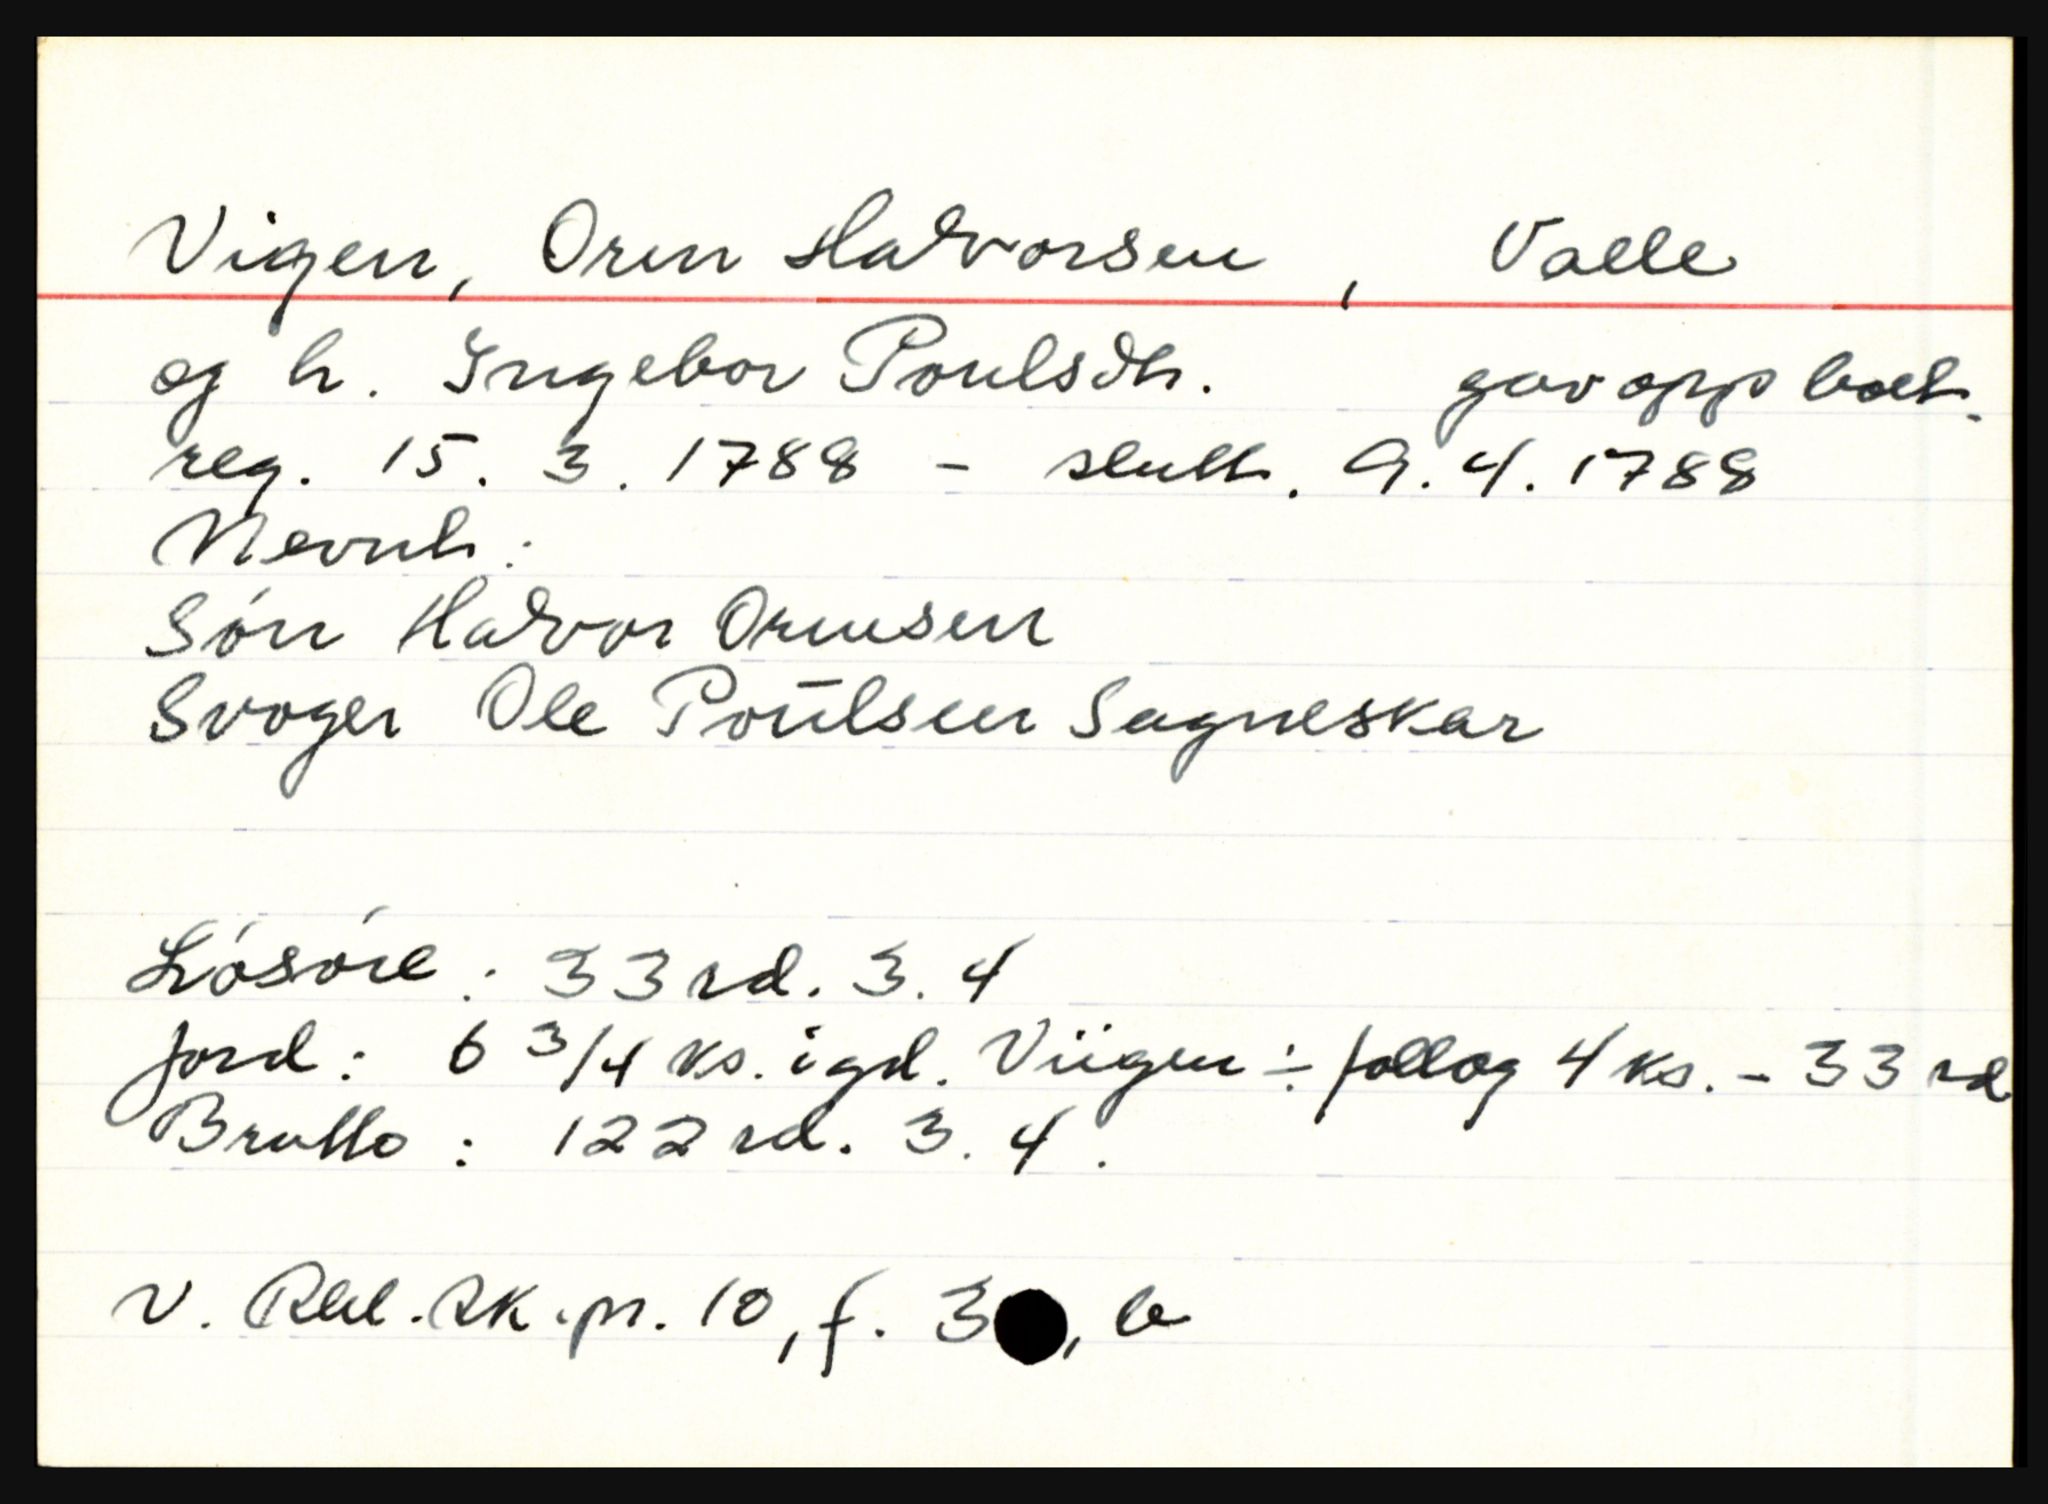 Vigen, Orm Halvorsen, Valle
og h. Ingebor Poulsdt. gav opp boet.
reg. 15. 3. 1788 - slutt. 9. 4. 1788
Nevnt:
Sön Halvor Ormsen
Svoger Ole Poūlsen Sagneskar
Lösöre: 33 rd. 3. 4
Jord: 6 3/4 ks. i gd. Viigen ÷ follog 4 ks. - 33 rd
Brutto: 122 rd. 3. 4.
V. Rbl. Sk. pr. 10, f. 3 , b